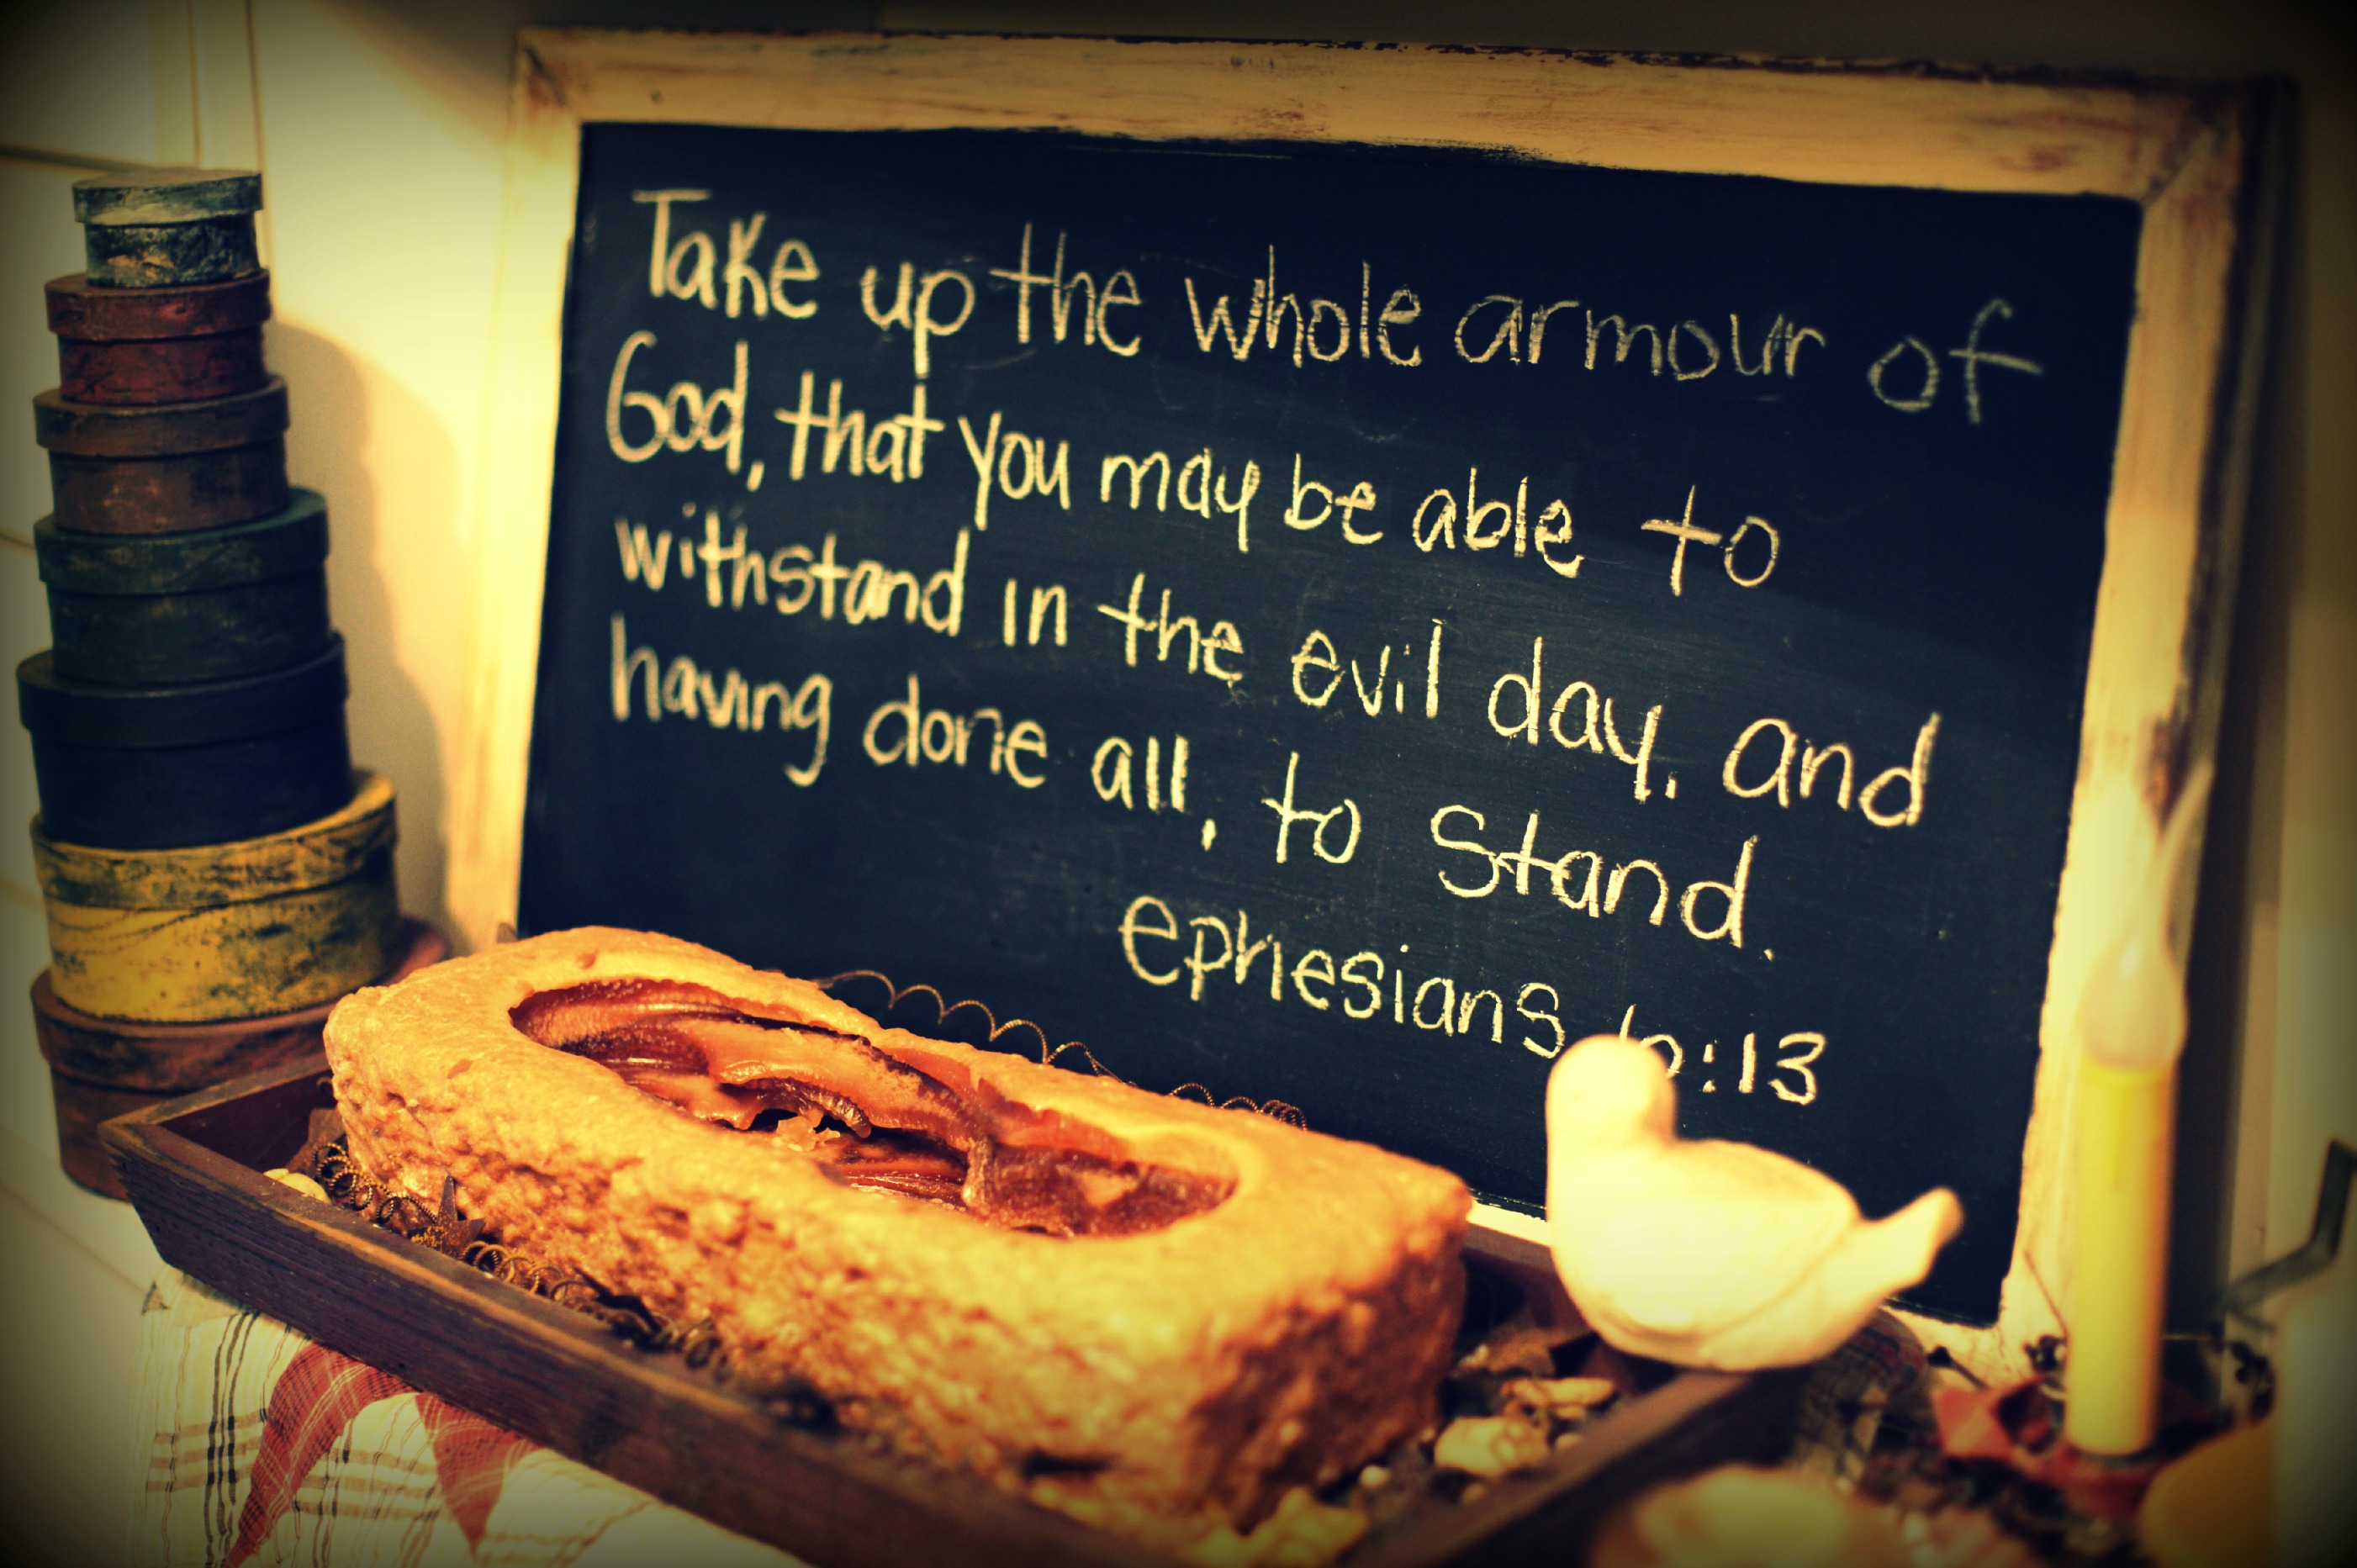 Take up the whole armour of
God, that you may be able to
withstand in the evil day, and
having done all, to stand.
ephesians 6:13